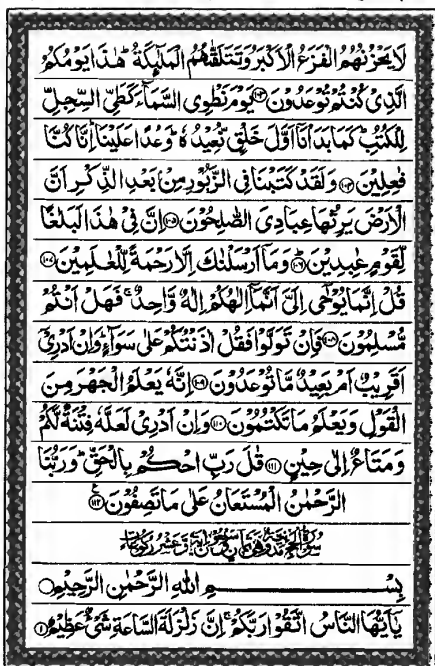 لَا يَحْزُنُهُمُ الْفَزَعُ الْاَكْبَرُ وَتَتَلَقّٰىهُمُ الْمَلٰٓئِكَةُ ؕ هٰذَا يَوْمُكُمُ
الَّذِیْ كُنْتُمْ تُوْعَدُوْنَ ۝۱۰۳ يَوْمَ نَطْوِی السَّمَآءَ كَطَیِّ السِّجِلِّ
لِلْكُتُبِ ؕ كَمَا بَدَاْنَاۤ اَوَّلَ خَلْقٍ نُّعِيْدُهٗ ؕ وَعْدًا عَلَيْنَا ؕ اِنَّا كُنَّا
فٰعِلِيْنَ ۝۱۰۴ وَلَقَدْ كَتَبْنَا فِی الزَّبُوْرِ مِنْۢ بَعْدِ الذِّكْرِ اَنَّ
الْاَرْضَ يَرِثُهَا عِبَادِیَ الصّٰلِحُوْنَ ۝۱۰۵ اِنَّ فِیْ هٰذَا لَبَلٰغًا
لِّقَوْمٍ عٰبِدِيْنَ ۝۱۰۶ وَمَاۤ اَرْسَلْنٰكَ اِلَّا رَحْمَةً لِّلْعٰلَمِيْنَ ۝۱۰۷
قُلْ اِنَّمَا يُوْحٰۤی اِلَیَّ اَنَّمَاۤ اِلٰهُكُمْ اِلٰهٌ وَّاحِدٌ ۚ فَهَلْ اَنْتُمْ
مُّسْلِمُوْنَ ۝۱۰۸ فَاِنْ تَوَلَّوْا فَقُلْ اٰذَنْتُكُمْ عَلٰی سَوَآءٍ ؕ وَاِنْ اَدْرِیْۤ
اَقَرِيْبٌ اَمْ بَعِيْدٌ مَّا تُوْعَدُوْنَ ۝۱۰۹ اِنَّهٗ يَعْلَمُ الْجَهْرَ مِنَ
الْقَوْلِ وَيَعْلَمُ مَا تَكْتُمُوْنَ ۝۱۱۰ وَاِنْ اَدْرِیْ لَعَلَّهٗ فِتْنَةٌ لَّكُمْ
وَمَتَاعٌ اِلٰی حِيْنٍ ۝۱۱۱ قٰلَ رَبِّ احْكُمْ بِالْحَقِّ ؕ وَرَبُّنَا
الرَّحْمٰنُ الْمُسْتَعَانُ عَلٰی مَا تَصِفُوْنَ ۝۱۱۲
سُوْرَةُ الْحَجِّ
بِسْمِ اللهِ الرَّحْمٰنِ الرَّحِيْمِ
يٰۤاَيُّهَا النَّاسُ اتَّقُوْا رَبَّكُمْ ۚ اِنَّ زَلْزَلَةَ السَّاعَةِ شَیْءٌ عَظِيْمٌ ۝۱